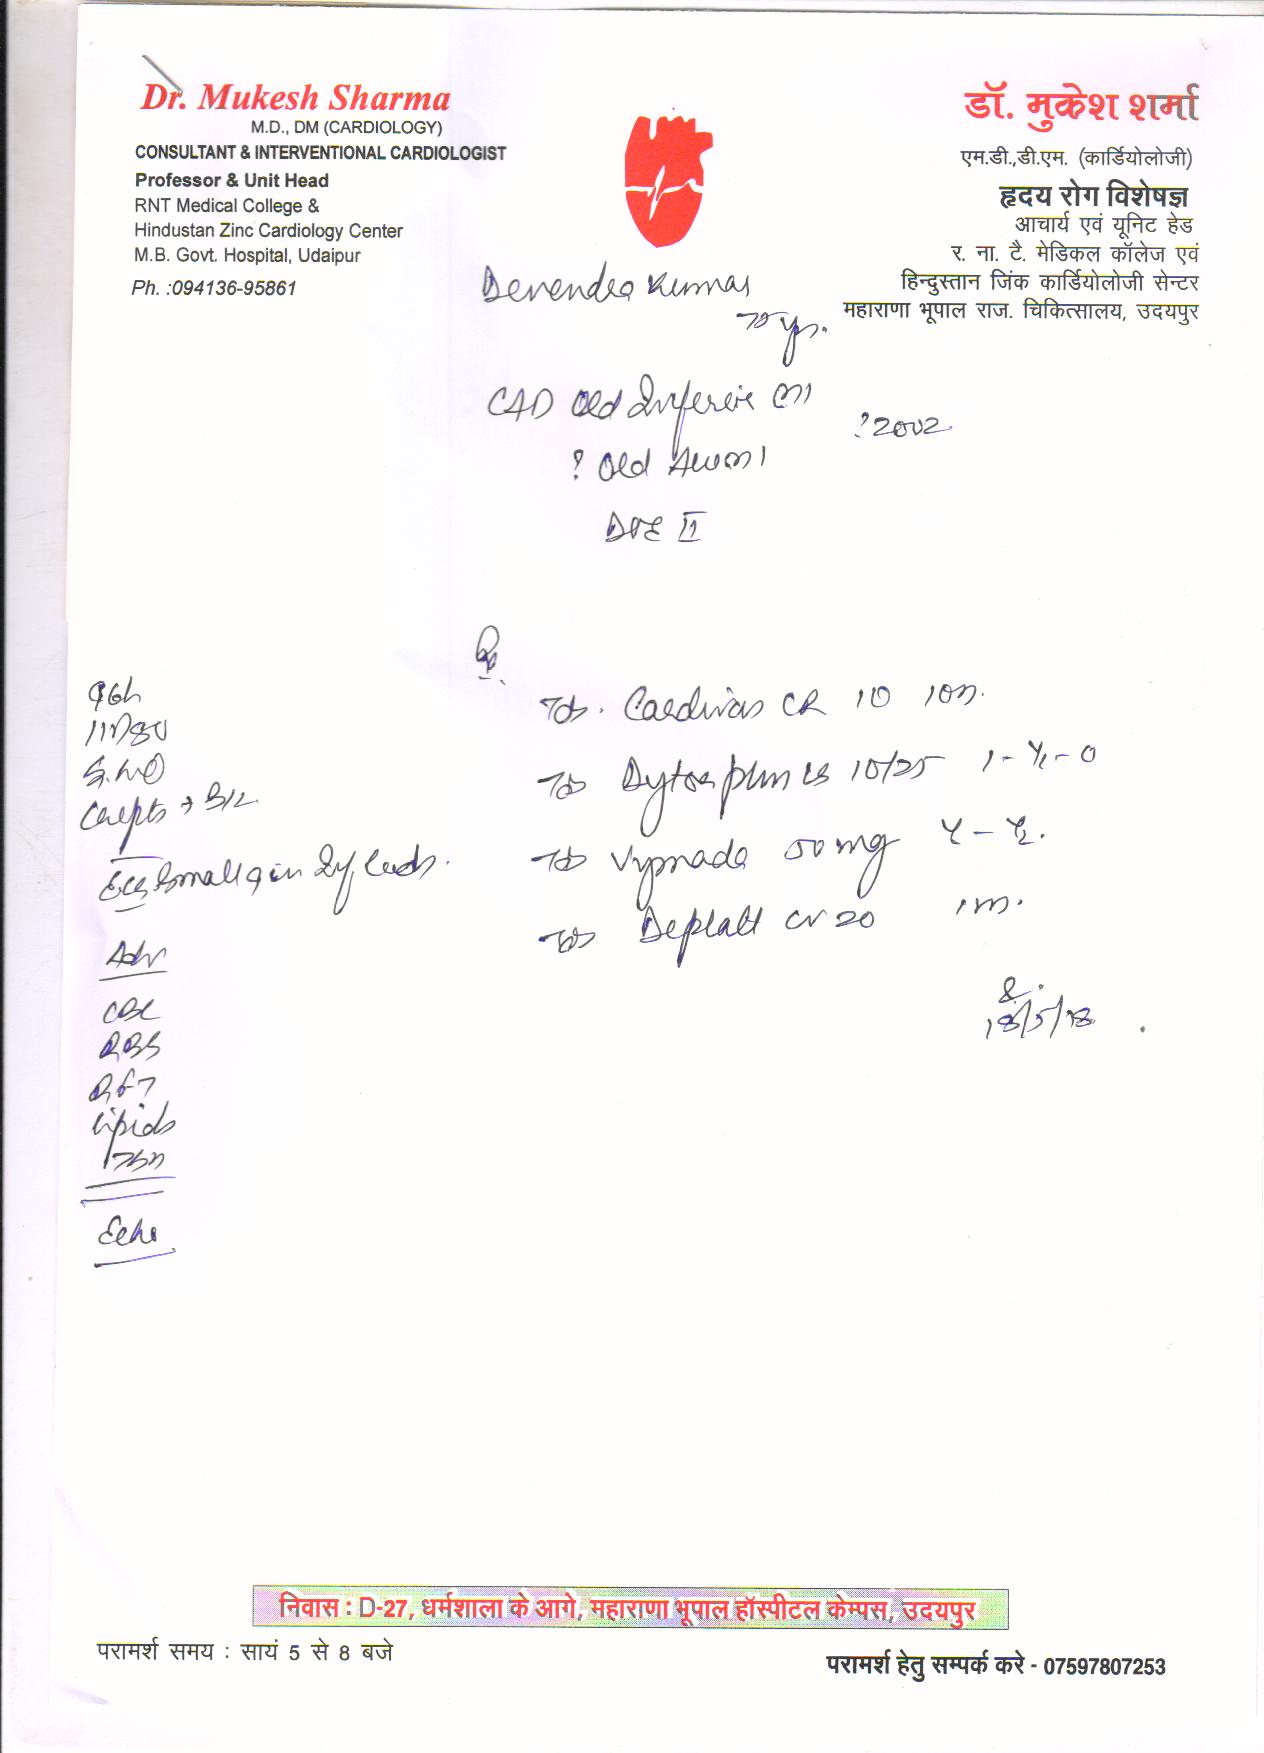 Dr. Mukesh Sharma
M.D., DM (CARDIOLOGY)
CONSULTANT & INTERVENTIONAL CARDIOLOGIST
Professor & Unit Head
RNT Medical College &
Hindustan Zinc Cardiology Center
M.B. Govt. Hospital, Udaipur
Ph. :094136-95861
डॉ. मुकेश शर्मा
एम.डी.,डी.एम. (कार्डियोलोजी)
हृदय रोग विशेषज्ञ
आचार्य एवं यूनिट हेड
र. ना. टै. मेडिकल कॉलेज एवं
हिन्दुस्तान जिंक कार्डियोलोजी सेन्टर
महाराणा भूपाल राज. चिकित्सालय, उदयपुर
Devendra Kumar
yr.
CAD Old Inferior MI
? 2002
? Old AWMI
DOE II
Rx
Tab. Cardivas CR 10
Tab Dytor plus LS 10/25 1-½-0
Tab Vymada 50 mg ½-½.
Tab Deplatt CV 20
18/5/18
ECG small q in Inf leads.
Adv
CBC
RBS
RFT
Lipids
TSH
Echo
निवास : D-27, धर्मशाला के आगे, महाराणा भूपाल हॉस्पीटल केम्पस, उदयपुर
परामर्श समय : सायं 5 से 8 बजे
परामर्श हेतु सम्पर्क करे - 07597807253